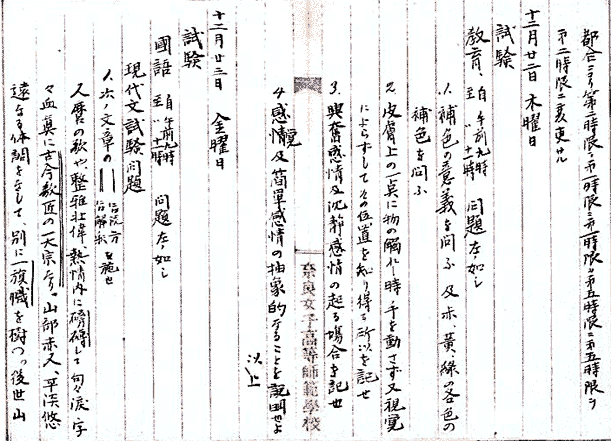 都合ニヨリ第一時限ヲ第二時限ニ第二時限ヲ第五時限ニ第五時限ヲ
第二時限ニ変更サル
十二月廿二日 木曜日
試験
教育、 自午前九時 至〃十一時 問題左ノ如シ
1. 補色の意義を問ふ 及赤、黄、緑の各色の
補色を問ふ
2. 皮膚上の一点に物の触れし時手を動さず又視覚
によらずしてその位置を知り得る所以を記せ
3. 興奮感情及沈静感情の起る場合を記せ
4. 感覚及簡単感情の抽象的なることを説明せよ
以上
奈良女子高等師範學校
十二月廿三日 金曜日
試験
國語 自午前九時 至〃十一時 問題左ノ如シ
現代文試験問題
1. 次ノ文章の 読方 解釈 を施せ
人麿の歌や整雅壮偉熱情内に磅礴して句々涙、字
々血真に古今数匠の一大宗なり。山部赤人、平淡悠
遠なる体調をなして別に一旗幟を樹つ。後世山